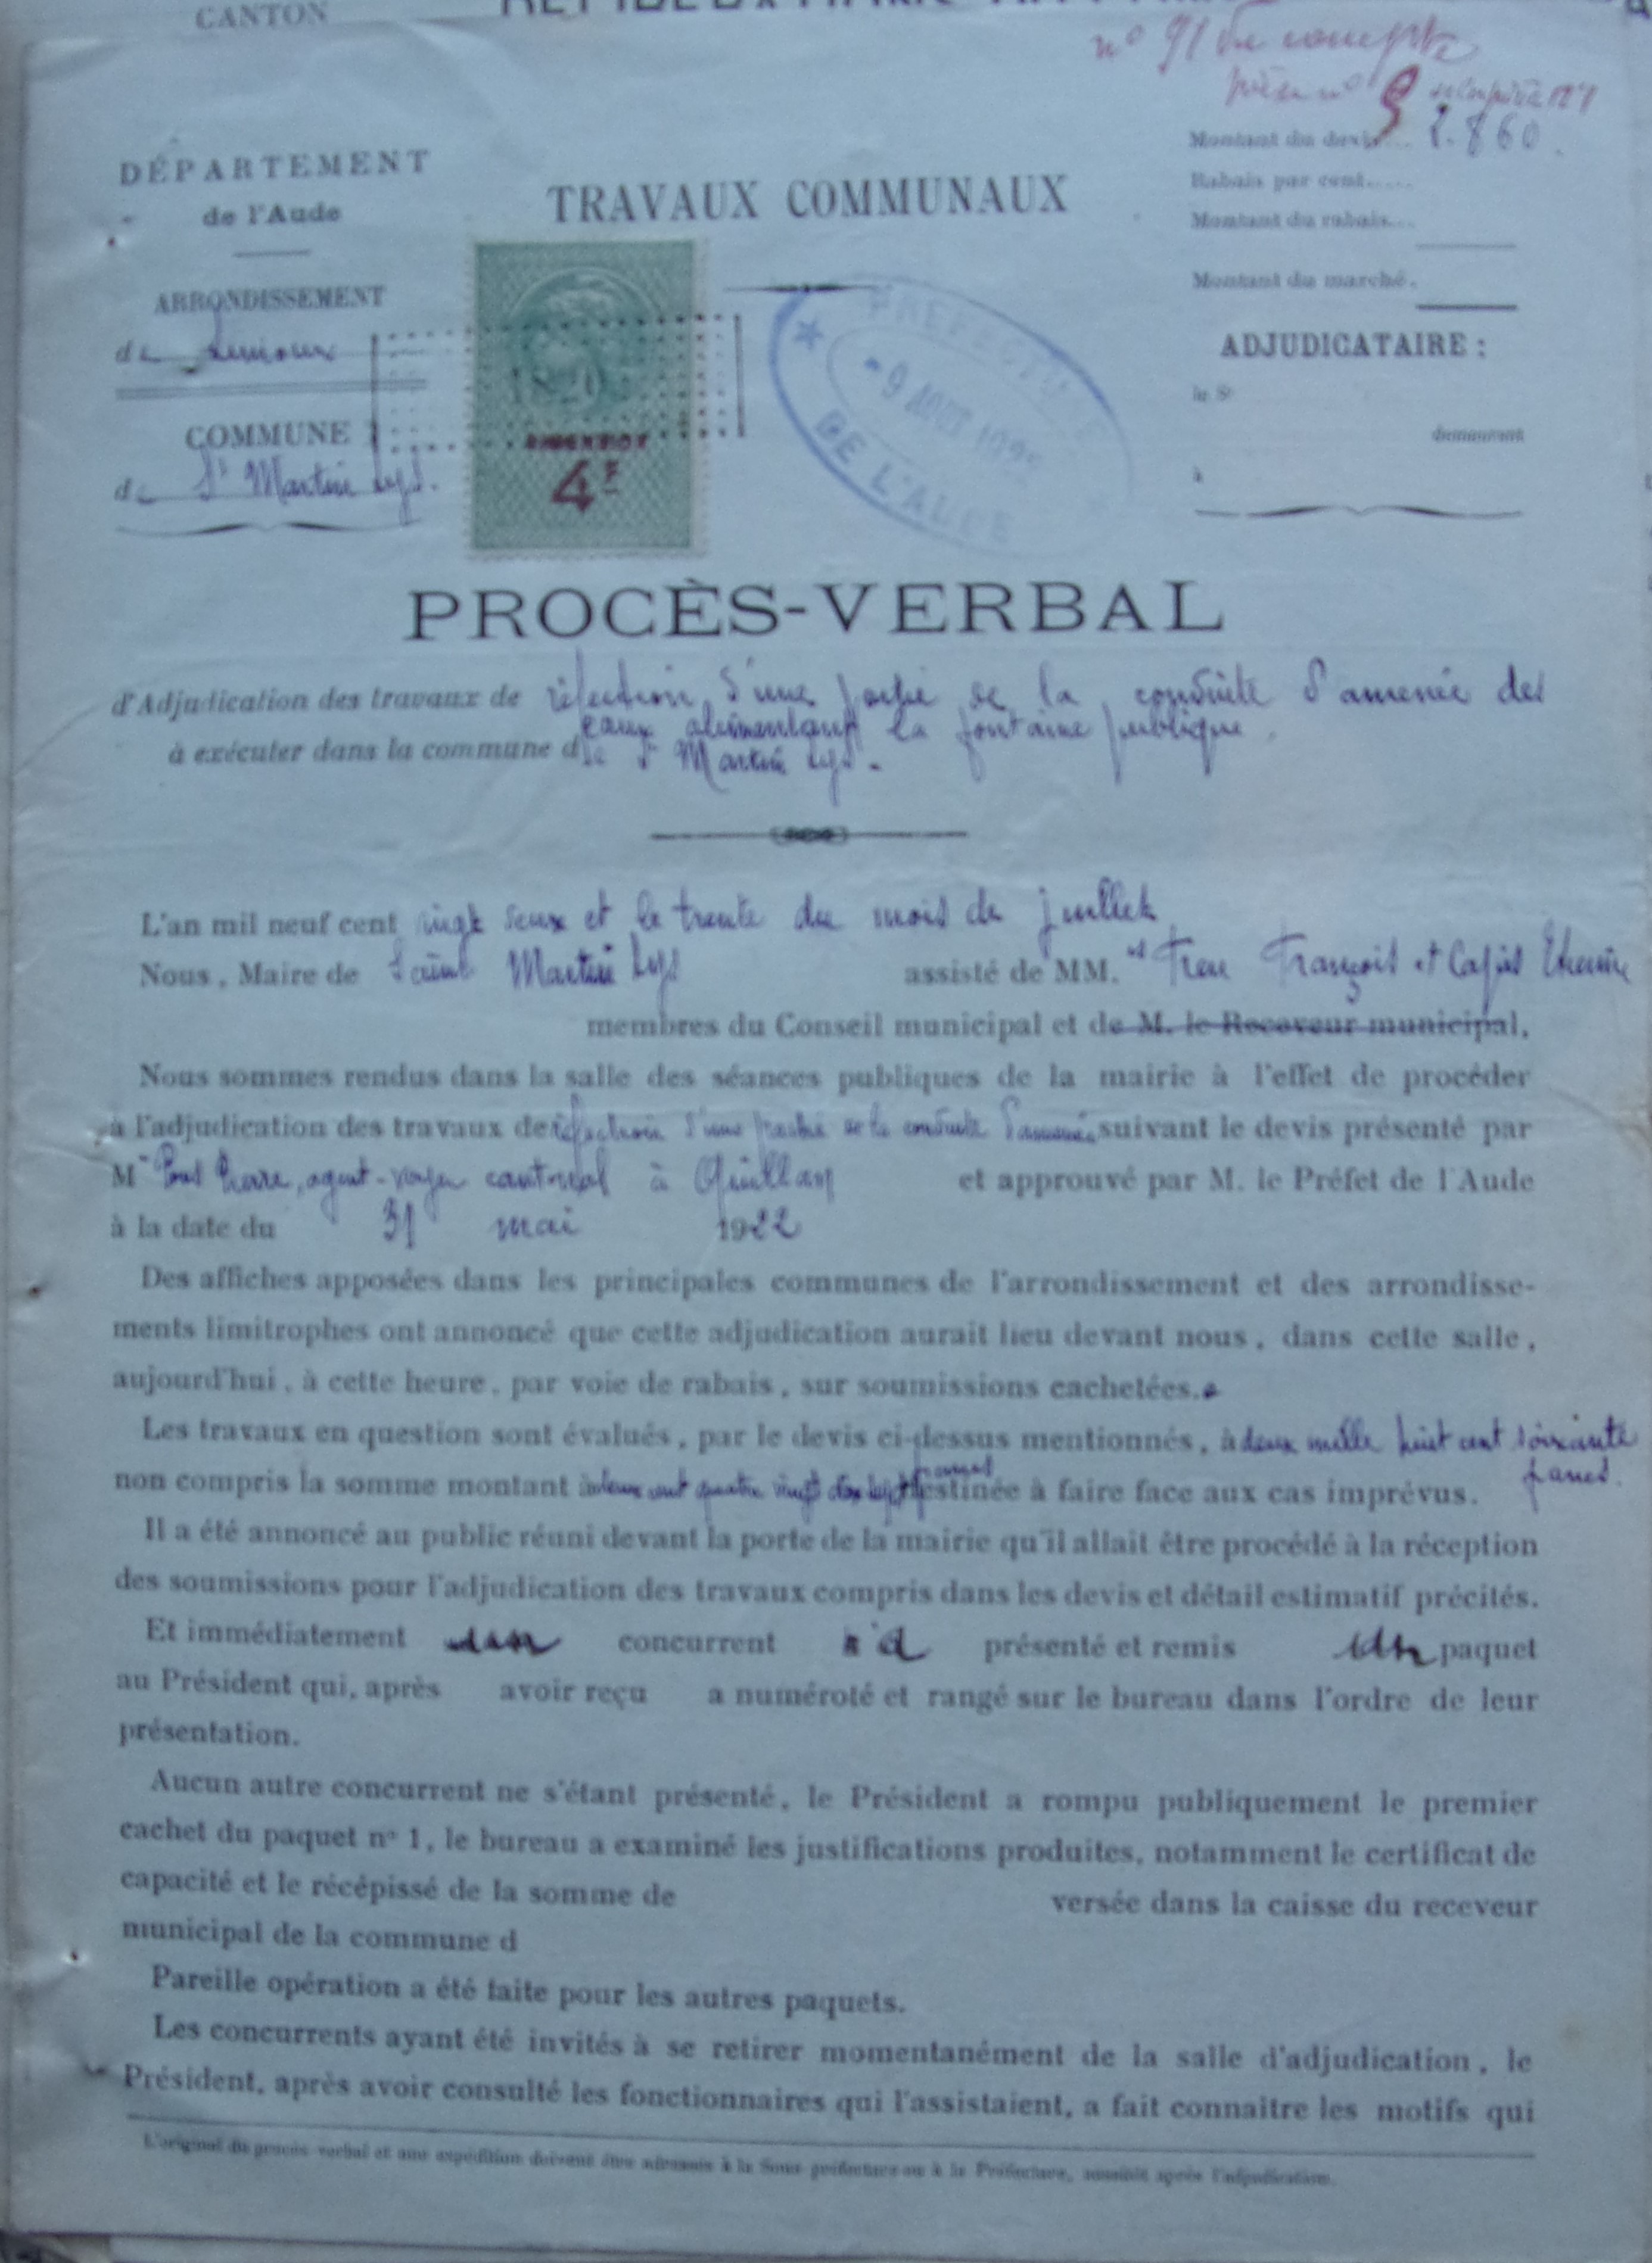 CANTON
n° 91 du compte
pièce n° 9
Montant du devis... 2.860.
DÉPARTEMENT
Rabais par cent.....
TRAVAUX COMMUNAUX
de l'Aude
Montant du rabais...
ARRONDISSEMENT
Montant du marché.
PREFECTURE
de Limoux
ADJUDICATAIRE :
-9 AOUT 1922
le Sr
DE L'AUDE
COMMUNE
demeurant
4F
de St Martin Lys.
à
PROCÈS-VERBAL
d'Adjudication des travaux de réfection d'une partie de la conduite d'amenée des
eaux alimentant la fontaine publique.
à exécuter dans la commune de St Martin Lys.
L'an mil neuf cent vingt deux et le trente du mois de juillet
Nous, Maire de Saint Martin Lys assisté de MM. François et Étienne
membres du Conseil municipal et de M. le Receveur municipal,
Nous sommes rendus dans la salle des séances publiques de la mairie à l'effet de procéder
à l'adjudication des travaux de réfection d'une partie de la conduite d'amenée suivant le devis présenté par
M Pierre, agent-voyer cantonal à Quillan et approuvé par M. le Préfet de l'Aude
à la date du 31 mai 1922
Des affiches apposées dans les principales communes de l'arrondissement et des arrondisse-
ments limitrophes ont annoncé que cette adjudication aurait lieu devant nous, dans cette salle,
aujourd'hui, à cette heure, par voie de rabais, sur soumissions cachetées.
Les travaux en question sont évalués, par le devis ci-dessus mentionnés, à deux mille huit cent soixante
francs.
non compris la somme montant à deux cent quatre vingt dix sept francs destinée à faire face aux cas imprévus.
Il a été annoncé au public réuni devant la porte de la mairie qu'il allait être procédé à la réception
des soumissions pour l'adjudication des travaux compris dans les devis et détail estimatif précités.
Et immédiatement un concurrent a présenté et remis un paquet
au Président qui, après avoir reçu a numéroté et rangé sur le bureau dans l'ordre de leur
présentation.
Aucun autre concurrent ne s'étant présenté, le Président a rompu publiquement le premier
cachet du paquet n° 1, le bureau a examiné les justifications produites, notamment le certificat de
capacité et le récépissé de la somme de versée dans la caisse du receveur
municipal de la commune d
Pareille opération a été faite pour les autres paquets.
Les concurrents ayant été invités à se retirer momentanément de la salle d'adjudication, le
Président, après avoir consulté les fonctionnaires qui l'assistaient, a fait connaitre les motifs qui
L'original du procès-verbal et une expédition doivent être adressés à la Sous-préfecture ou à la Préfecture, aussitôt après l'adjudication.